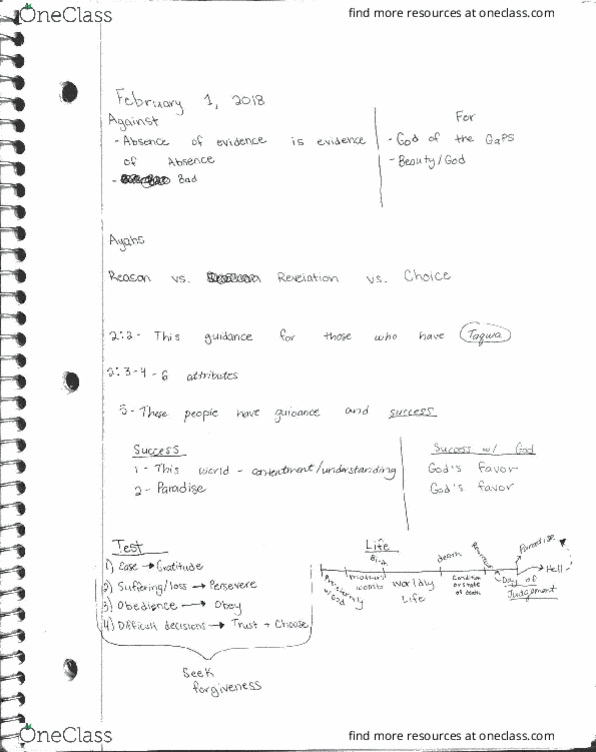 OneClass
find more resources at oneclass.com
February 1, 2018
Against
- Absence of evidence is evidence
of Absence
- Bad
For
- God of the Gaps
- Beauty/God
Ayahs
Reason vs. Revelation vs. Choice
2:2 - This guidance for those who have Taqwa
2:3-4 - 6 attributes
5 - These people have guidance and success
Success
1 - This world - contentment/understanding
2 - Paradise
Success w/ God
God's favor
God's favor
Test
1) Ease → Gratitude
2) Suffering/loss → Persevere
3) Obedience → Obey
4) Difficult decisions → Trust + Choose
Seek
forgiveness
Life
death
Paradise
Hell
w/ God
mothers
womb
Worldly
Life
Condition
or state
of death
Day of
Judgement
OneClass
find more resources at oneclass.com